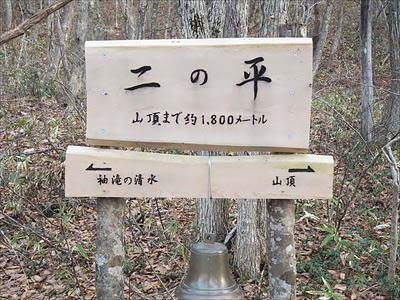 二の平
山頂まで約1,800メートル
← 袖滝の清水
山頂 →